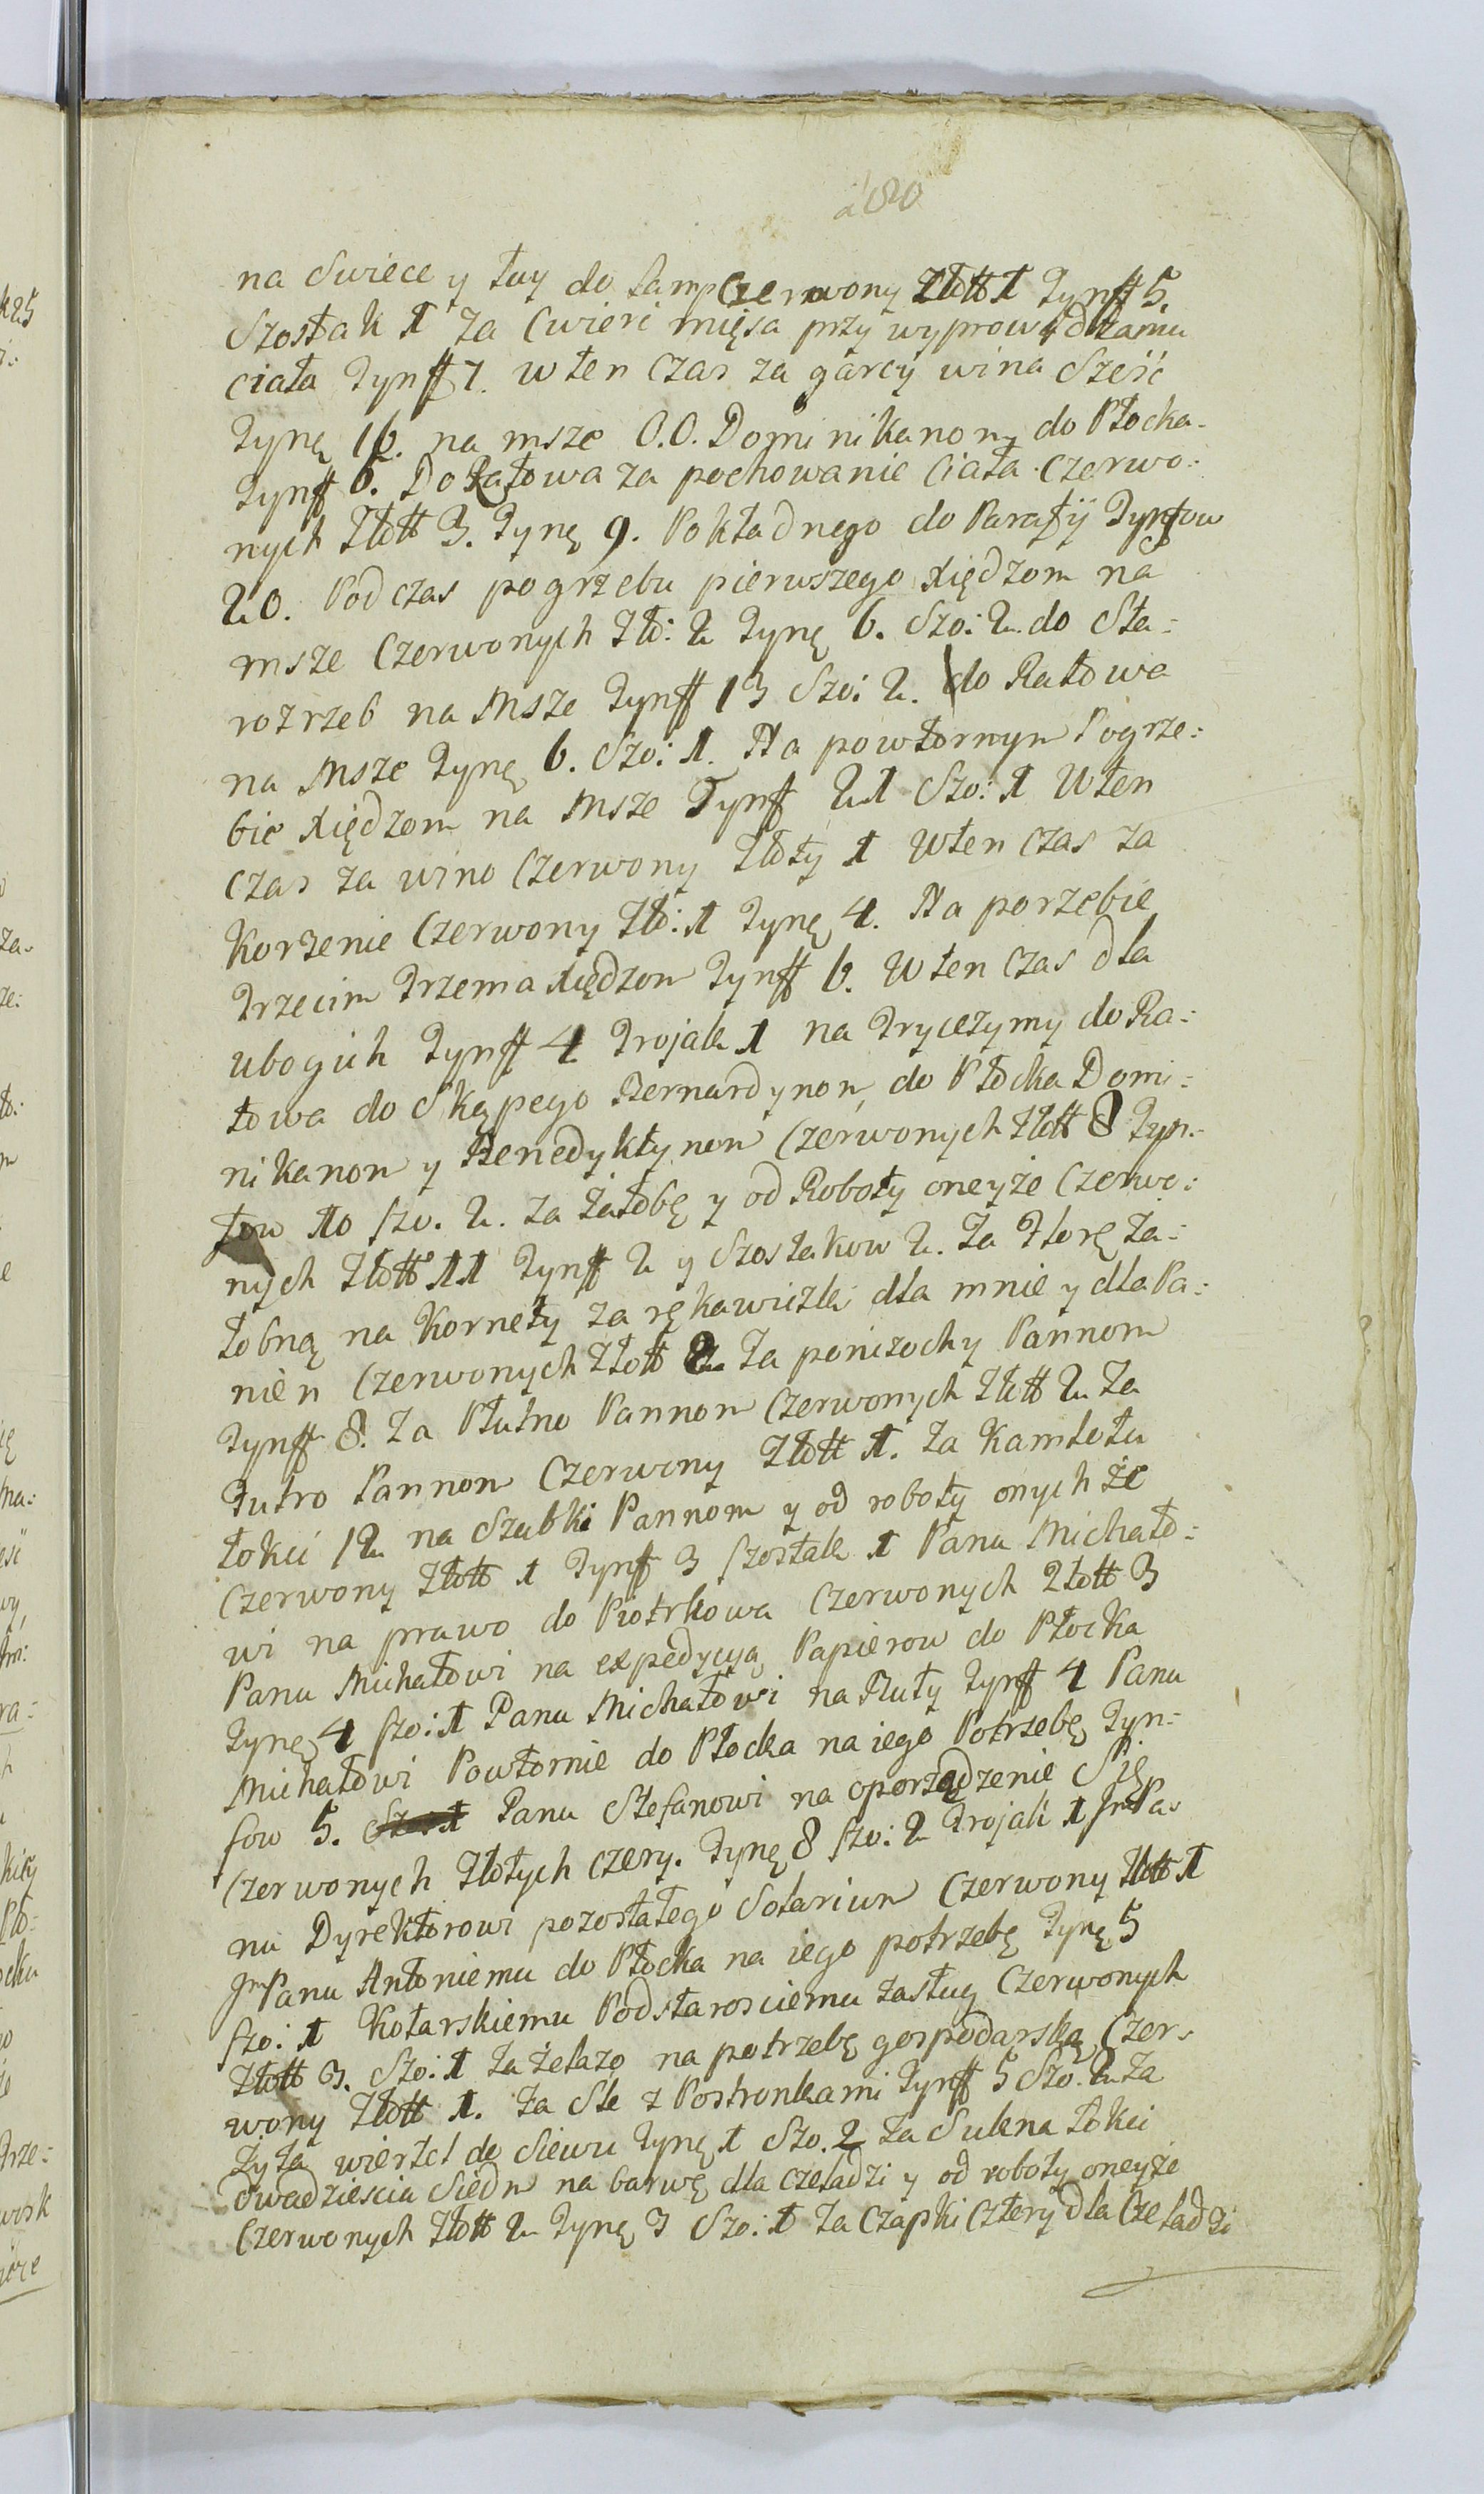 180
na Swiece y Łuy do lamp Czerwony Złott 1 Tynff 5.
Szostak 1 Za Cwierć mięsa przy wyprowadzaniu
ciała Tynff 7. w ten Czas za garcy wina Sześć
Tynę 16. na msze O.O. Dominikanom do Płocka.
Tynff 6. Do Ratowa za pochowanie Ciała Czerwo:
nych Złott 3. Tynę 9. Pokładnego do Parafij Tynfow
20. Podczas pogrzebu pierwszego xiędzom na
msze Czerwonych Zło: 2 Tynę 6. Szo: 2. do Sta:
rozrzeb na Msze Tynff 13 Szo: 2. do Ratowa
na Msze Tynę 6. Szo: 1. Na powtornym Pogrze:
bie xiędzom na Msze Tynff 21 Szo: 1 W ten
czas za wino Czerwony Złoty 1 W ten Czas za
Korzenie Czerwony Zło: 1 Tynę 4. Na porzebie
Trzecim Trzema xiędzom Tynff 6. W ten Czas dla
ubogich Tynff 4 Trojak 1 na Trycezymy do Ra:
towa do Skąpego Bernardynom, do Płocka Domi:
nikanom y Benedyktynom Czerwonych Złott 8 Tyn:
fow 10 Szo. 2. za żałobę y od Roboty oneyże Czerwo:
nych Złott 11 Tynff 2 y Szostakow 2. Za Florę ża:
łobną na Kornety za rękawiczki dla mnie y dla Pa:
nien Czerwonych Złott 2. Za ponczochy Pannom
Tynff 8. Za Płutno Pannom Czerwonych Złott 2. Za
Futro Pannom Czerwony Złott 1. Za Kamlotu
łokci 12 na Szubki Pannom y od roboty onych że
Czerwony Złott 1 Tynff 3 Szostak 1 Panu Michało:
wi na prawo do Piotrkowa Czerwonych Złott 3
Panu Michałowi na expedycyą Papierow do Płocka
Tynę 4 Szo: 1 Panu Michałowi na Buty Tynff 4 Panu
Michałowi Powtornie do Płocka na iego Potrzebę Tyn:
fow 5. Panu Stefanowi na oporządzenie Się
Czerwonych Złotych Czery. Tynę 8 Szo: 2 Trojak 1 JmPa:
nu Dyrektorowi pozostałego Solarium Czerwony Złott 1
JmPanu Antoniemu do Płocka na iego potrzebę Tynę 5
Szo: 1 Kotarskiemu Podstarosciemu zasług Czerwonych
Złott 3. Szo: 1 Za żelazo na potrzebę gospodarską Czer:
wony Złott 1. Za Sle z Postronkami Tynff 5 Szo. 2. Za
Żyta wiertel do Siewu Tynę 1 Szo. 2 Za Sukna łokci
dwadziescia Siedm na barwę dla czeladzi y od roboty oneyże
Czerwonych Złott 2 Tynę 3 Szo: 1 Za Czapki Cztery dla Czeladzi